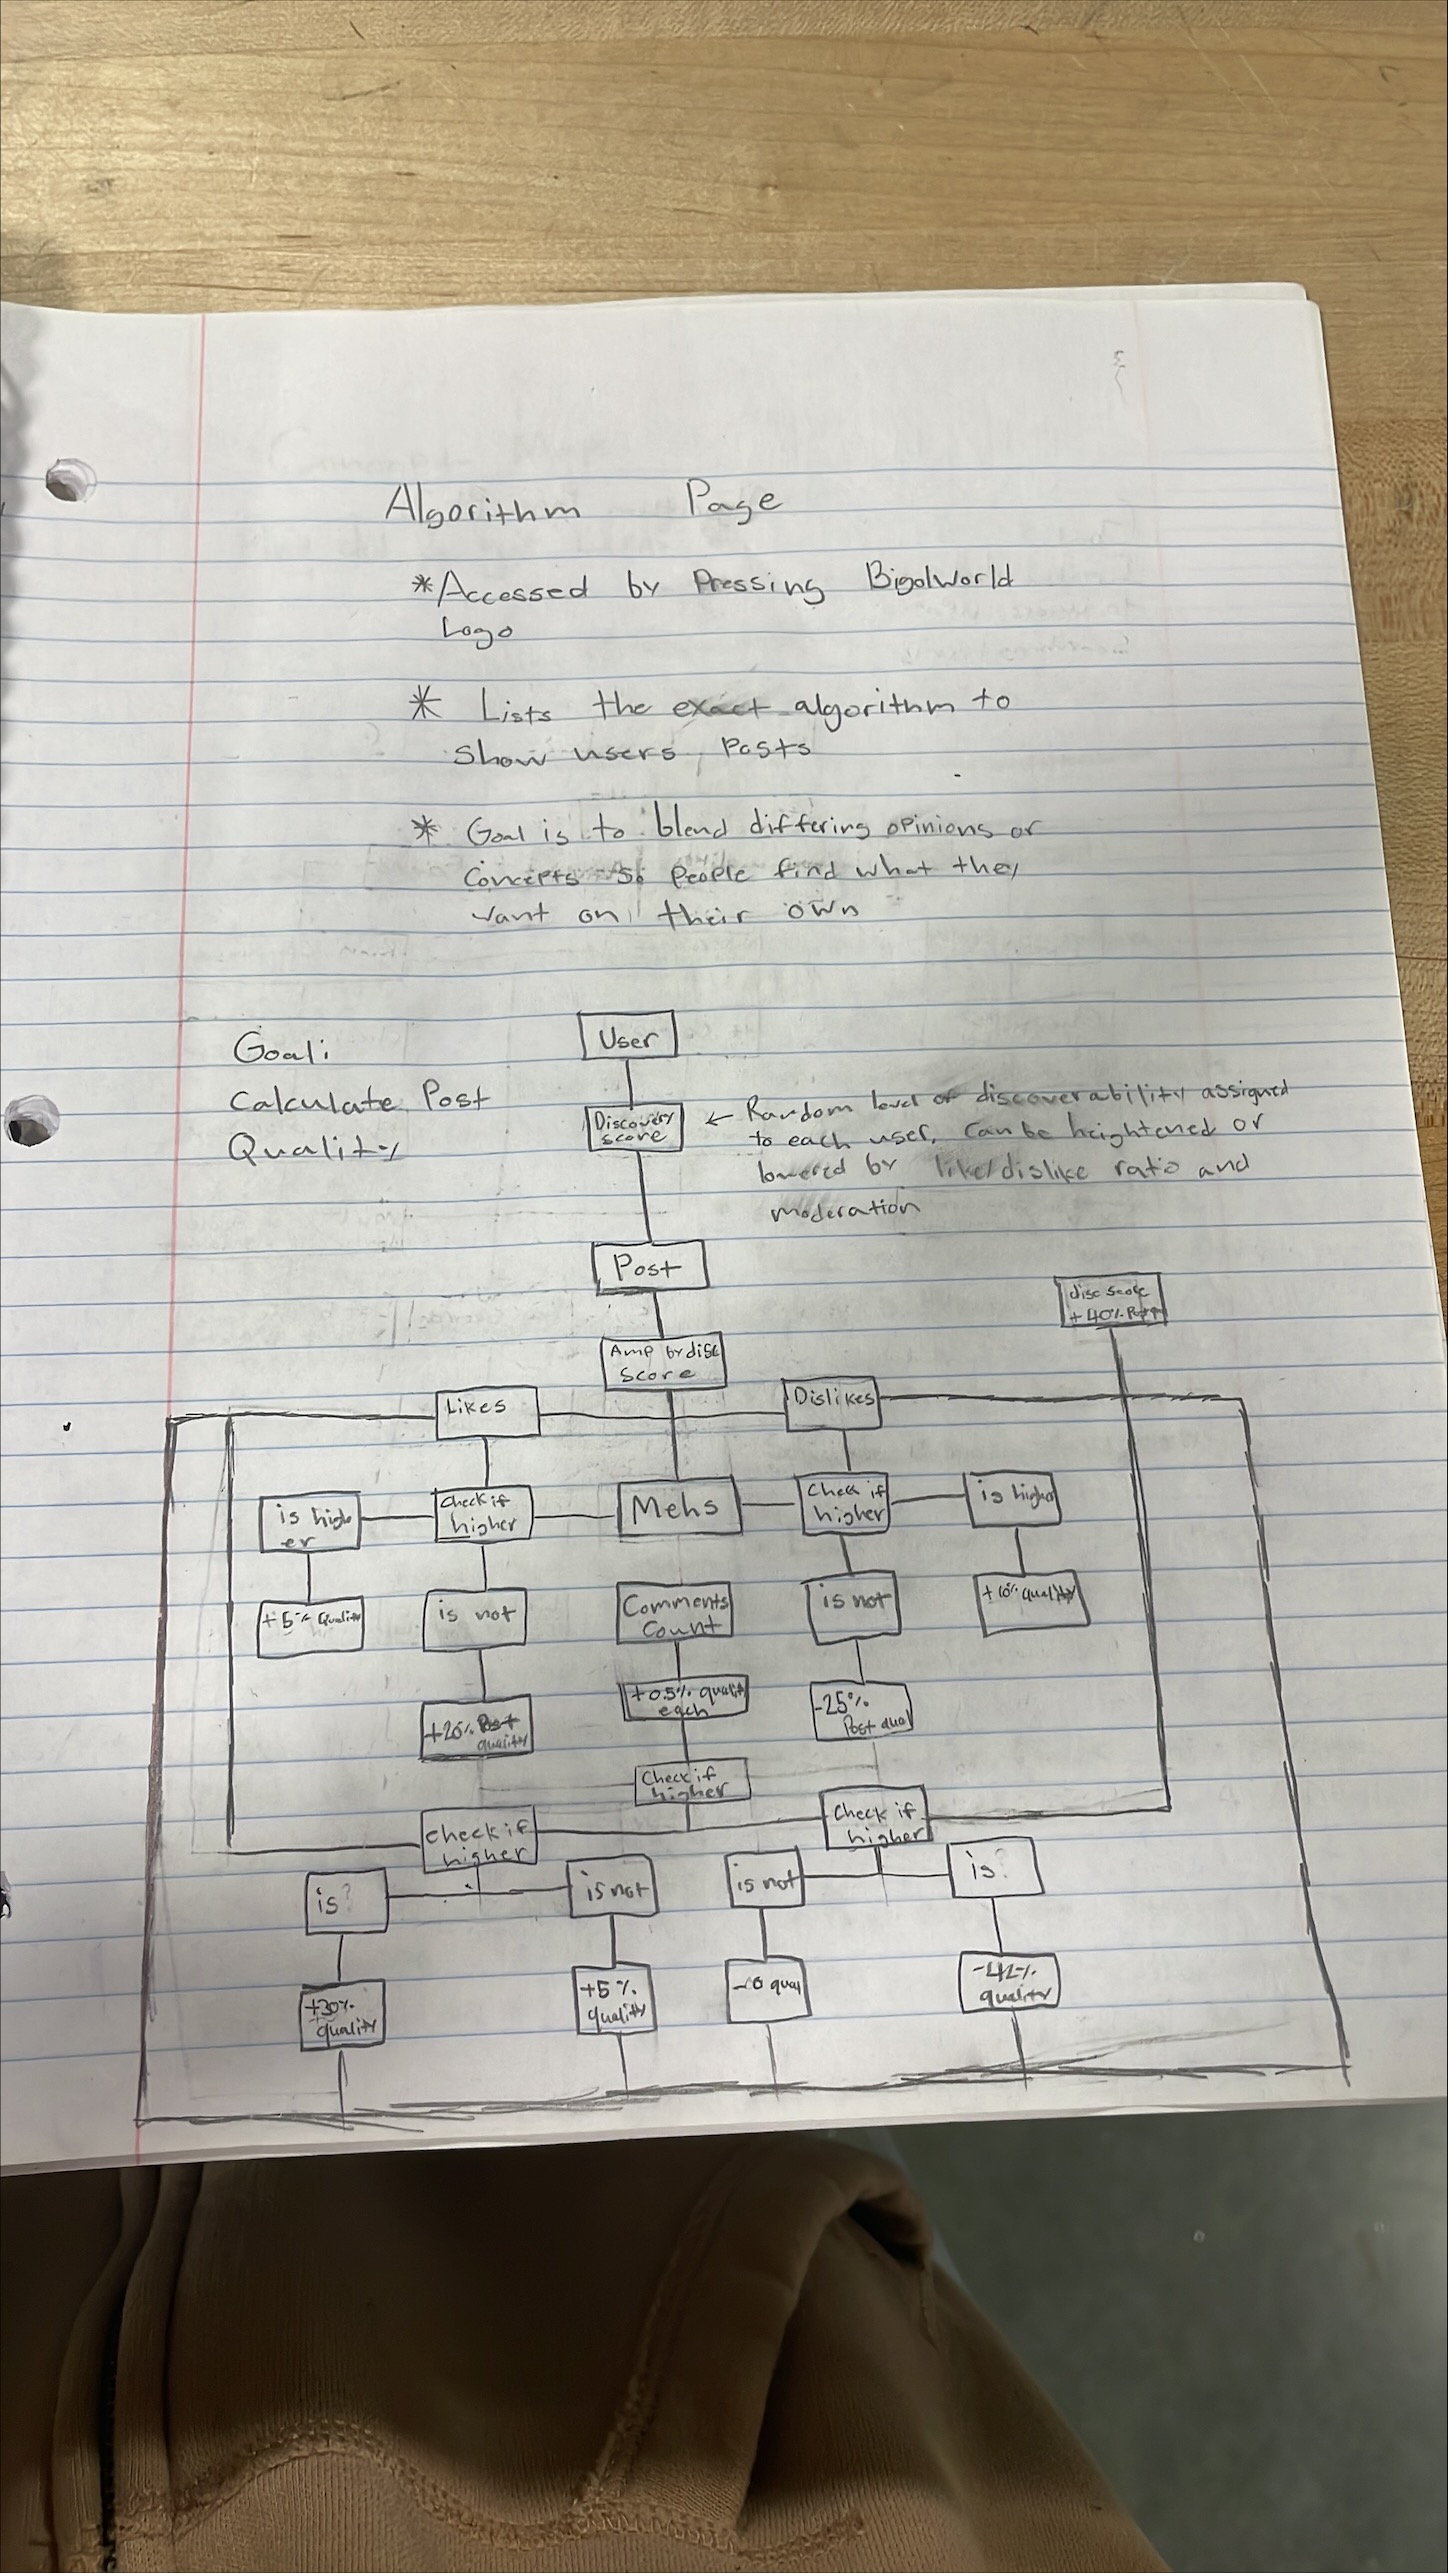 Algorithm Page
*Accessed by Pressing Bigolworld
Logo
* Lists the exact algorithm to
show users posts
* Goal is to blend differing opinions or
concepts so people find what they
want on their own
Goal:
Calculate Post
Quality
User
Discovery
score
← Random level of discoverability assigned
to each user, can be heightened or
lowered by like/dislike ratio and
moderation
Post
disc score
+40%
Amp by disc
score
Likes
Dislikes
is high
er
Check if
higher
Mehs
Check if
higher
is higher
+5% Quality
is not
Comments
Count
is not
+10% quality
+20% Post
quality
+0.5% quality
each
-25%
Post qual
Check if
higher
Check if
higher
Check if
higher
is?
is not
is not
is?
+30%
quality
+5%
quality
qual
-42%
quality